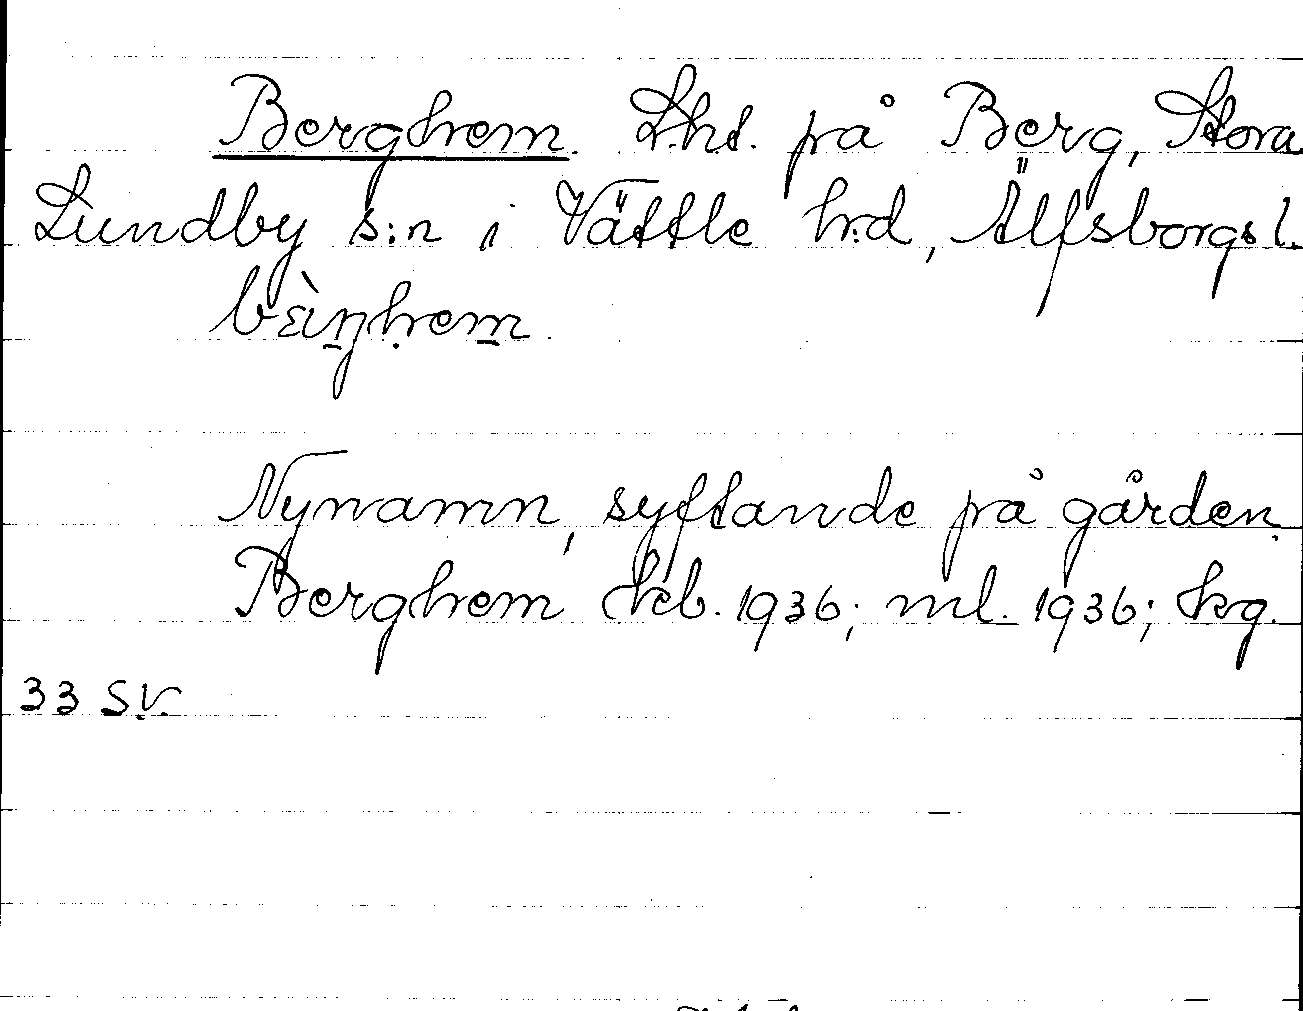 Berghem. Lht. på Berg, Stora
Lundby s:n i Vättle h:d, Älfsborgs l.
Nynamn, syftande på gården.
Berghem kb. 1936; ml. 1936; kg.
33 SV.